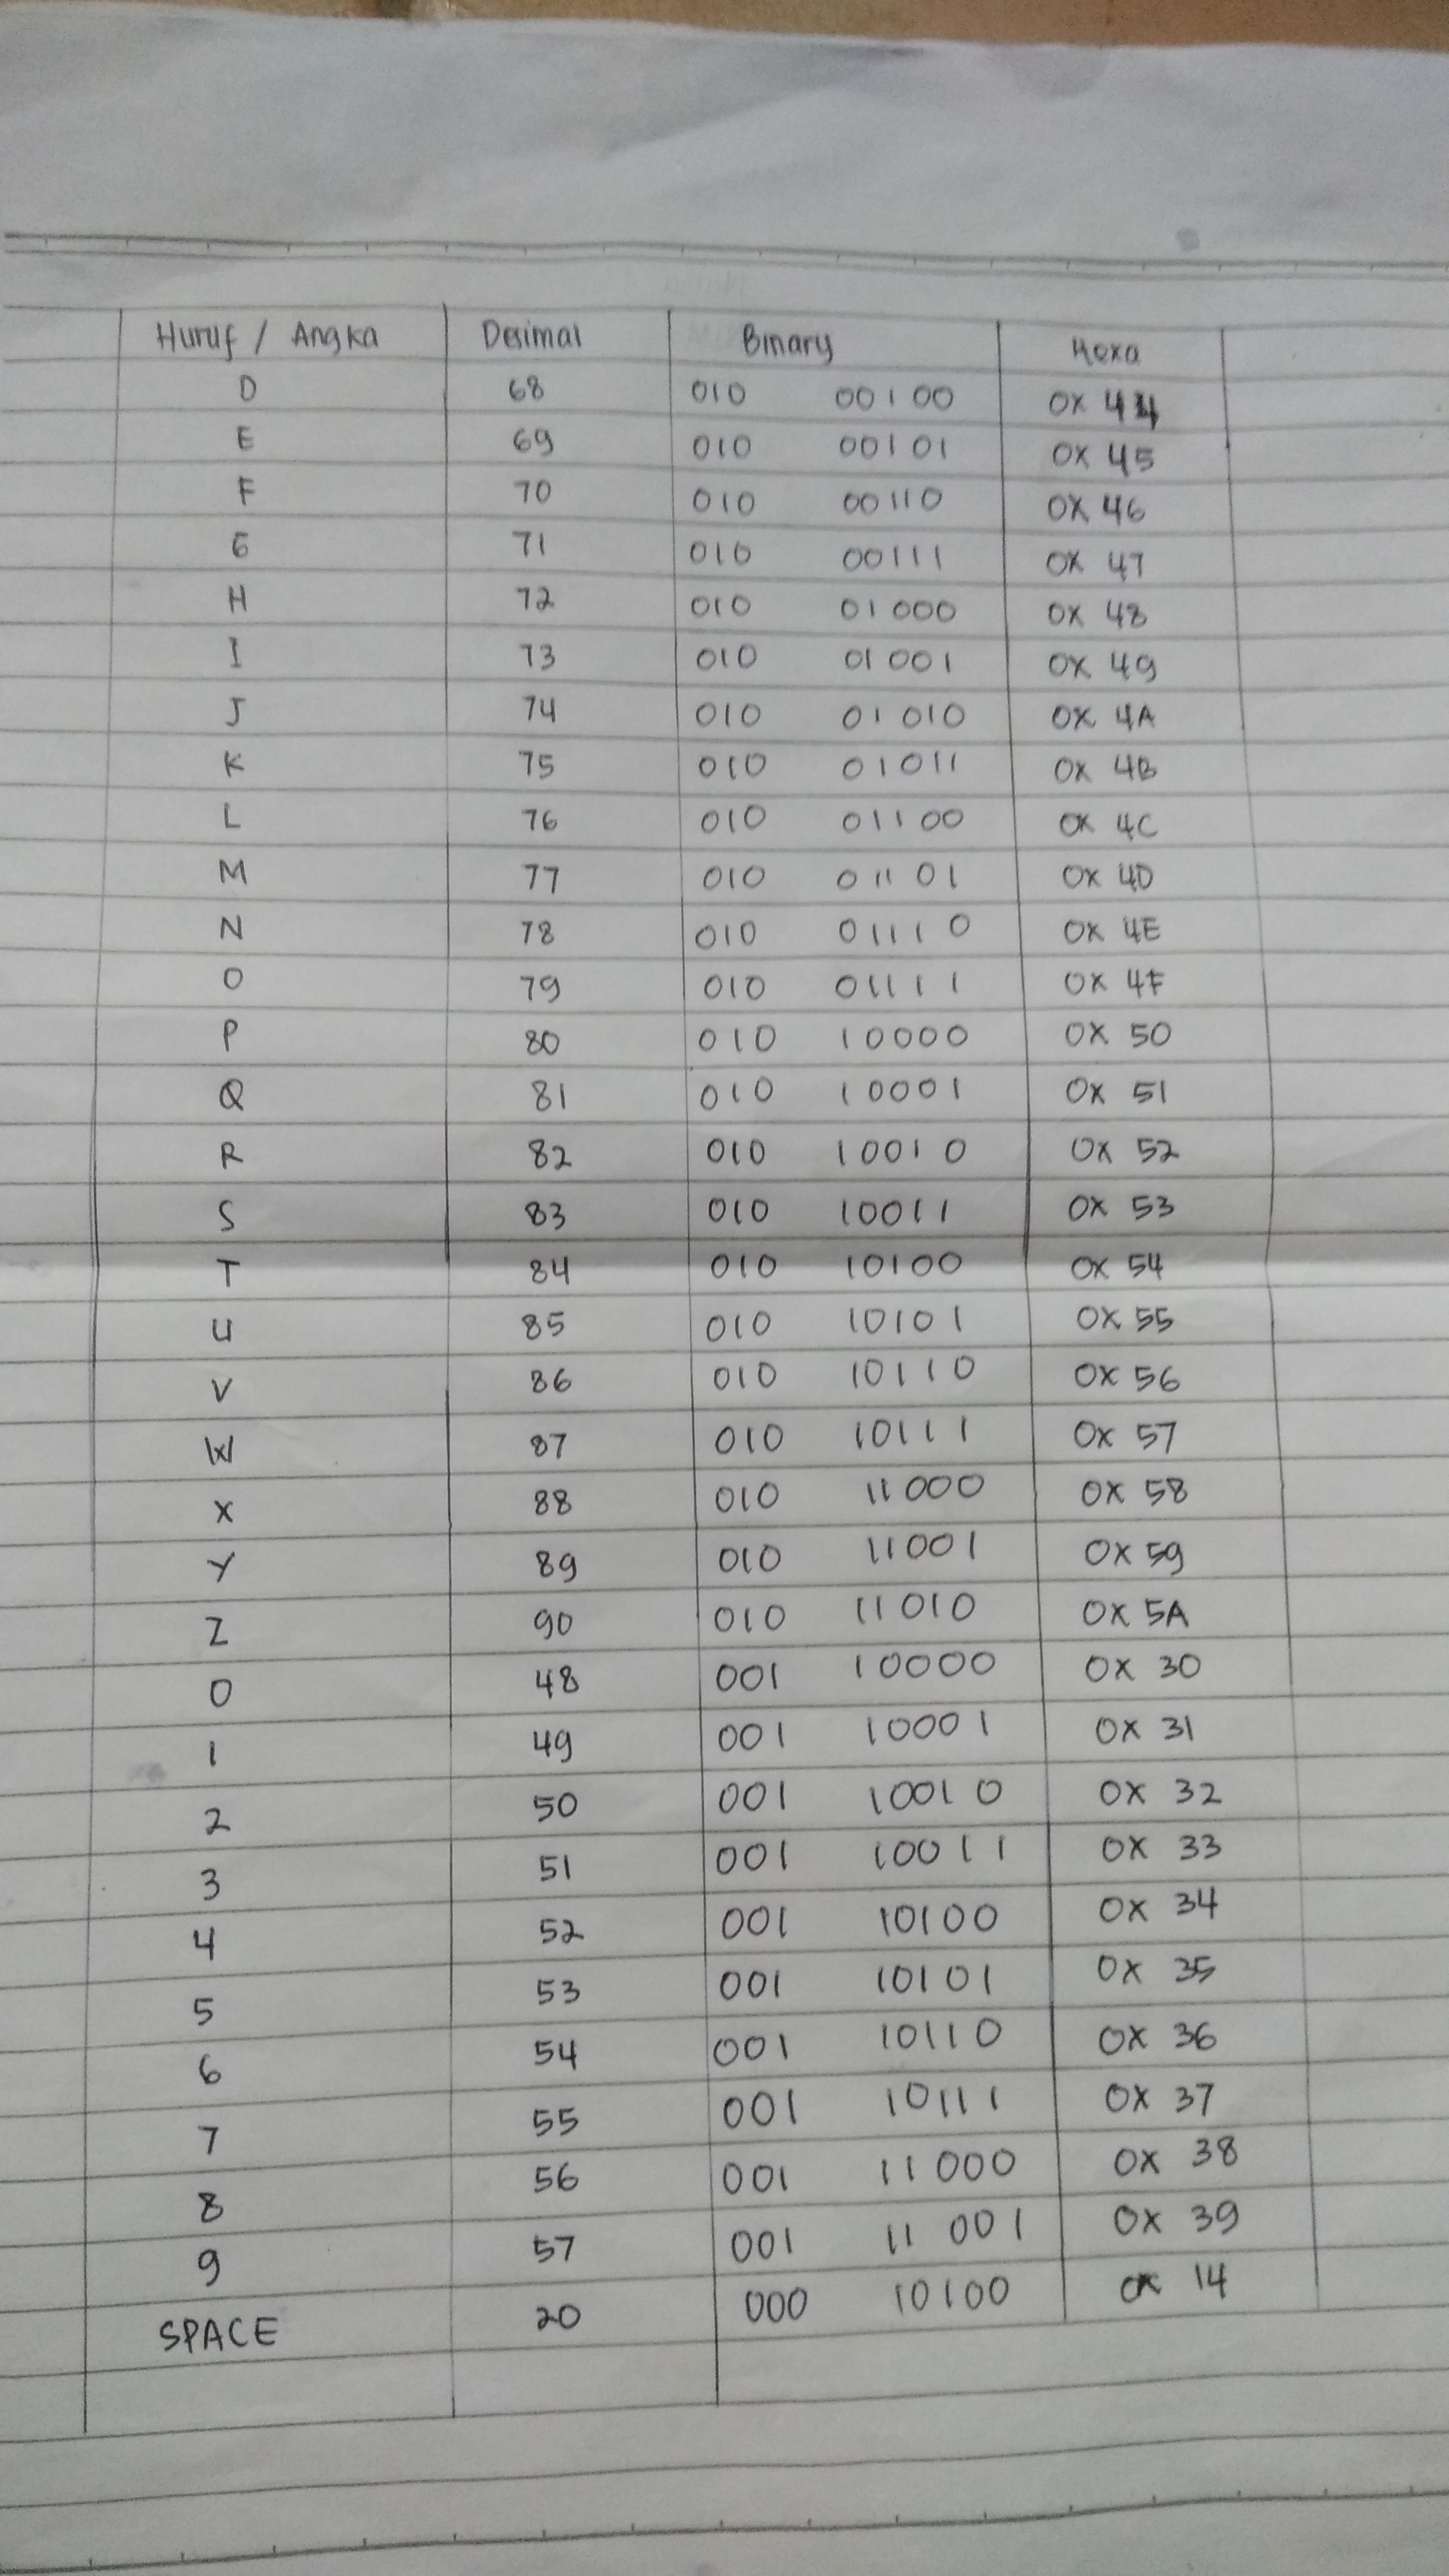 Huruf / Angka Desimal Binary Hexa
D 68 010 00100 0X 44
E 69 010 00101 0X 45
F 70 010 00110 0X 46
G 71 010 00111 0X 47
H 72 010 01000 0X 48
I 73 010 01001 0X 49
J 74 010 01010 0X 4A
K 75 010 01011 0X 4B
L 76 010 01100 0X 4C
M 77 010 01101 0X 4D
N 78 010 01110 0X 4E
O 79 010 01111 0X 4F
P 80 010 10000 0X 50
Q 81 010 10001 0X 51
R 82 010 10010 0X 52
S 83 010 10011 0X 53
T 84 010 10100 0X 54
U 85 010 10101 0X 55
V 86 010 10110 0X 56
W 87 010 10111 0X 57
X 88 010 11000 0X 58
Y 89 010 11001 0X 59
Z 90 010 11010 0X 5A
0 48 001 10000 0X 30
1 49 001 10001 0X 31
2 50 001 10010 0X 32
3 51 001 10011 0X 33
4 52 001 10100 0X 34
5 53 001 10101 0X 35
6 54 001 10110 0X 36
7 55 001 10111 0X 37
8 56 001 11000 0X 38
9 57 001 11001 0X 39
SPACE 20 000 10100 0X 14